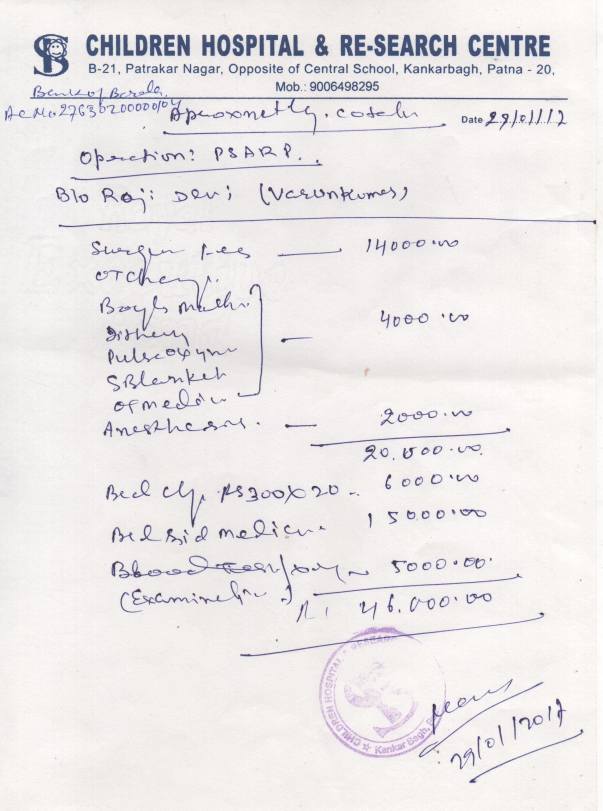 CHILDREN HOSPITAL & RE-SEARCH CENTRE
B-21, Patrakar Nagar, Opposite of Central School, Kankarbagh, Patna - 20,
Mob.: 9006498295
Bank of Baroda
Ac No 27630200000104
Date 29/01/17
Operation: PSARP.
B/o Raji Devi (Varunkumar)
Surgen fees — 14000.00
OT Charge
Boyls
4000.00
SBlanket
OT medicin
Anesthesis. — 2000.00
20,000.00
Bed chg. RS 300X20 - 6000.00
Bed sid medicine 15000.00
Blood Test/xry - 5000.00
(Examination)
46,000.00
CHILDREN HOSPITAL
Kankar Bagh, Pa
29/01/2017